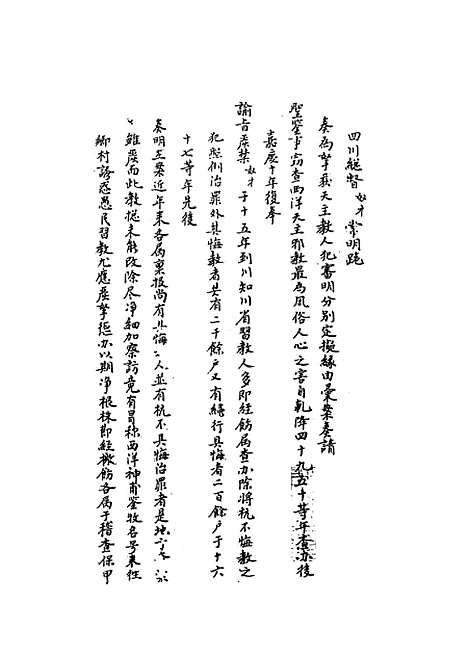 四川總督奴才常明跪
奏為拏獲天主教人犯審明分别定擬緣由彙案奏請
聖鑒事竊查西洋天主邪教最為風俗人心之害自乹隆四十九五十等年查办後
嘉慶十年復奉
諭旨嚴禁奴才于十五年到川知川省習教人多即經飭属查办除將抗不悔教之
犯照例治罪外其悔教者共有二千餘户又有續行具悔者二百餘户于十六
十七等年先後
奏明在案近年来各属禀报尚有具悔之人並有抗不具悔治罪者是地方
雖嚴而此教總未能改除尽净細加察訪竟有冒称西洋神甫鉴牧各号来往
鄉村誘惑愚民習教尤應嚴拏惩办以期净根株即經檄飭各属于稽查保甲